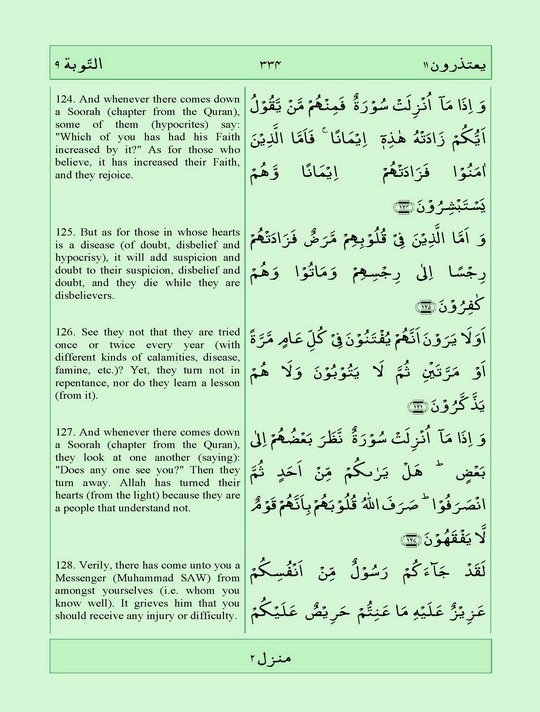 التّوبة ٩
٣٣٤
يعتذرون ١١
124. And whenever there comes down
a Soorah (chapter from the Quran),
some of them (hypocrites) say:
"Which of you has had his Faith
increased by it?" As for those who
believe, it has increased their Faith,
and they rejoice.
وَ اِذَا مَاۤ اُنْزِلَتْ سُوْرَةٌ فَمِنْهُمْ مَّنْ يَّقُوْلُ
اَيُّكُمْ زَادَتْهُ هٰذِهٖۤ اِيْمَانًا ۚ فَاَمَّا الَّذِيْنَ
اٰمَنُوْا فَزَادَتْهُمْ اِيْمَانًا وَّهُمْ
يَسْتَبْشِرُوْنَ
125. But as for those in whose hearts
is a disease (of doubt, disbelief and
hypocrisy), it will add suspicion and
doubt to their suspicion, disbelief and
doubt, and they die while they are
disbelievers.
وَ اَمَّا الَّذِيْنَ فِيْ قُلُوْبِهِمْ مَّرَضٌ فَزَادَتْهُمْ
رِجْسًا اِلٰى رِجْسِهِمْ وَمَاتُوْا وَهُمْ
كٰفِرُوْنَ ﴿١٢٥﴾
126. See they not that they are tried
once or twice every year (with
different kinds of calamities, disease,
famine, etc.)? Yet, they turn not in
repentance, nor do they learn a lesson
(from it).
اَوَلَا يَرَوْنَ اَنَّهُمْ يُفْتَنُوْنَ فِيْ كُلِّ عَامٍ مَّرَّةً
اَوْ مَرَّتَيْنِ ثُمَّ لَا يَتُوْبُوْنَ وَلَا هُمْ
يَذَّكَّرُوْنَ ﴿١٢٦﴾
127. And whenever there comes down
a Soorah (chapter from the Quran),
they look at one another (saying):
"Does any one see you?" Then they
turn away. Allah has turned their
hearts (from the light) because they are
a people that understand not.
وَ اِذَا مَاۤ اُنْزِلَتْ سُوْرَةٌ نَّظَرَ بَعْضُهُمْ اِلٰى
بَعْضٍ ؕ هَلْ يَرٰىكُمْ مِّنْ اَحَدٍ ثُمَّ
انْصَرَفُوْا ؕ صَرَفَ اللّٰهُ قُلُوْبَهُمْ بِاَنَّهُمْ قَوْمٌ
لَّا يَفْقَهُوْنَ ﴿١٢٧﴾
128. Verily, there has come unto you a
Messenger (Muhammad SAW) from
amongst yourselves (i.e. whom you
know well). It grieves him that you
should receive any injury or difficulty.
لَقَدْ جَآءَكُمْ رَسُوْلٌ مِّنْ اَنْفُسِكُمْ
عَزِيْزٌ عَلَيْهِ مَا عَنِتُّمْ حَرِيْصٌ عَلَيْكُمْ
منزل ٢